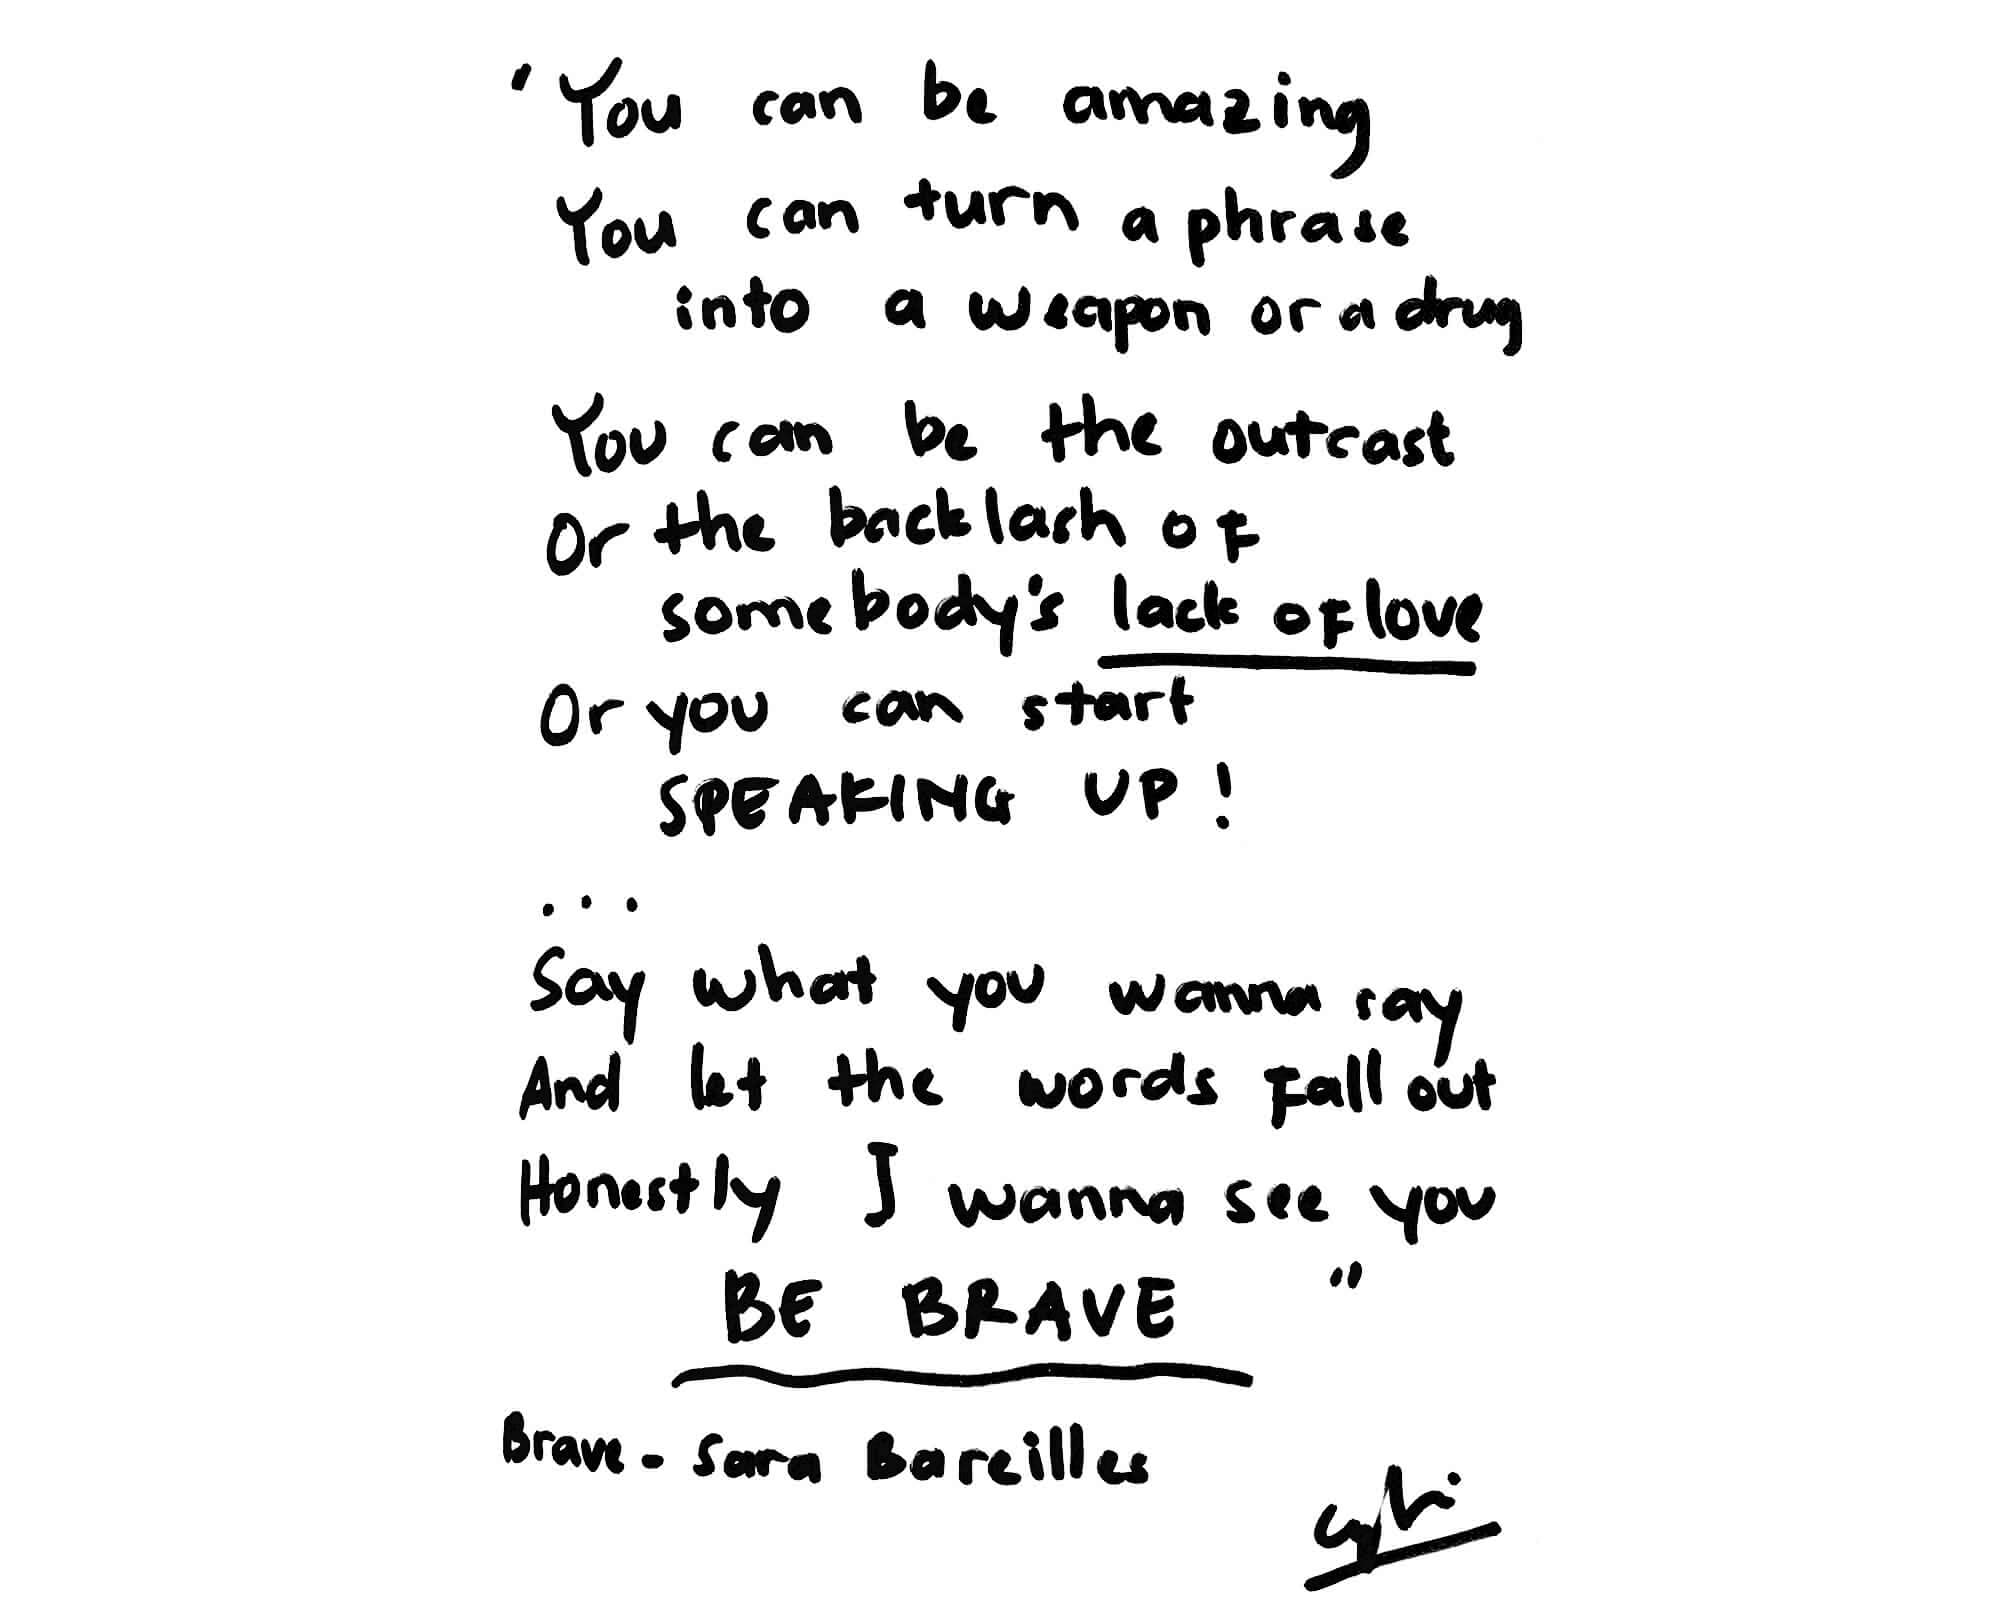 "You can be amazing
You can turn a phrase
into a weapon or a drug
You can be the outcast
Or the backlash of
somebody's lack of love
Or you can start
SPEAKING UP!
...
Say what you wanna say
And let the words fall out
Honestly I wanna see you
BE BRAVE "
Brave - Sara Bareilles